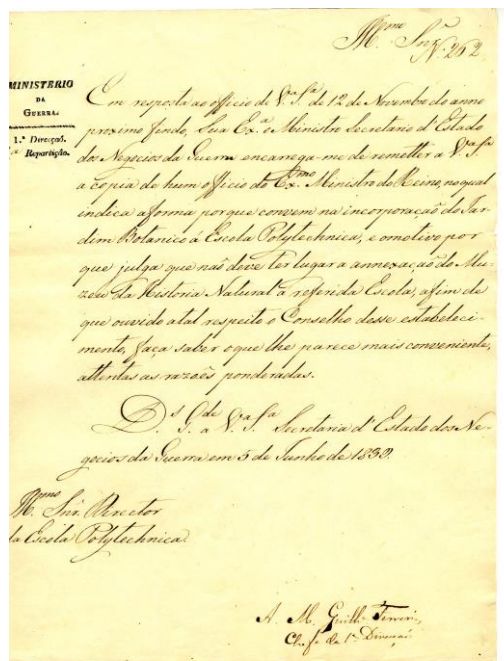 Ill.mo Snr.
N.º 262
MINISTERIO
DA
GUERRA.
1.ª Direcçaõ.
ª Repartição.
Em resposta ao officio de V.ª S.ª de 12 de Novembro do anno
proximo findo, Sua Ex.ª o Ministro Secretario d'Estado
dos Negocios da Guerra encarrega-me de remetter a V.ª S.ª
a copia de hum officio do Ex.mo Ministro do Reino, no qual
indica a forma porque convem na incorporação do Jar-
dim Botanico á Escola Polytechnica, e o motivo por
que julga que não deve ter lugar a annexação do Mu-
zeu da Historia Natural á referida Escola, afim de
que ouvido a tal respeito o Conselho desse estabeleci-
mento, faça saber o que lhe parece mais conveniente,
attentas as razões ponderadas.
D.s G.de a V.ª S.ª Secretaria d'Estado dos Ne-
gocios da Guerra em 5 de Junho de 1839.
Ill.mo Snr. Director
da Escola Polytechnica.
A. M. Guilh. Ferreri,
Chefe da 1.ª